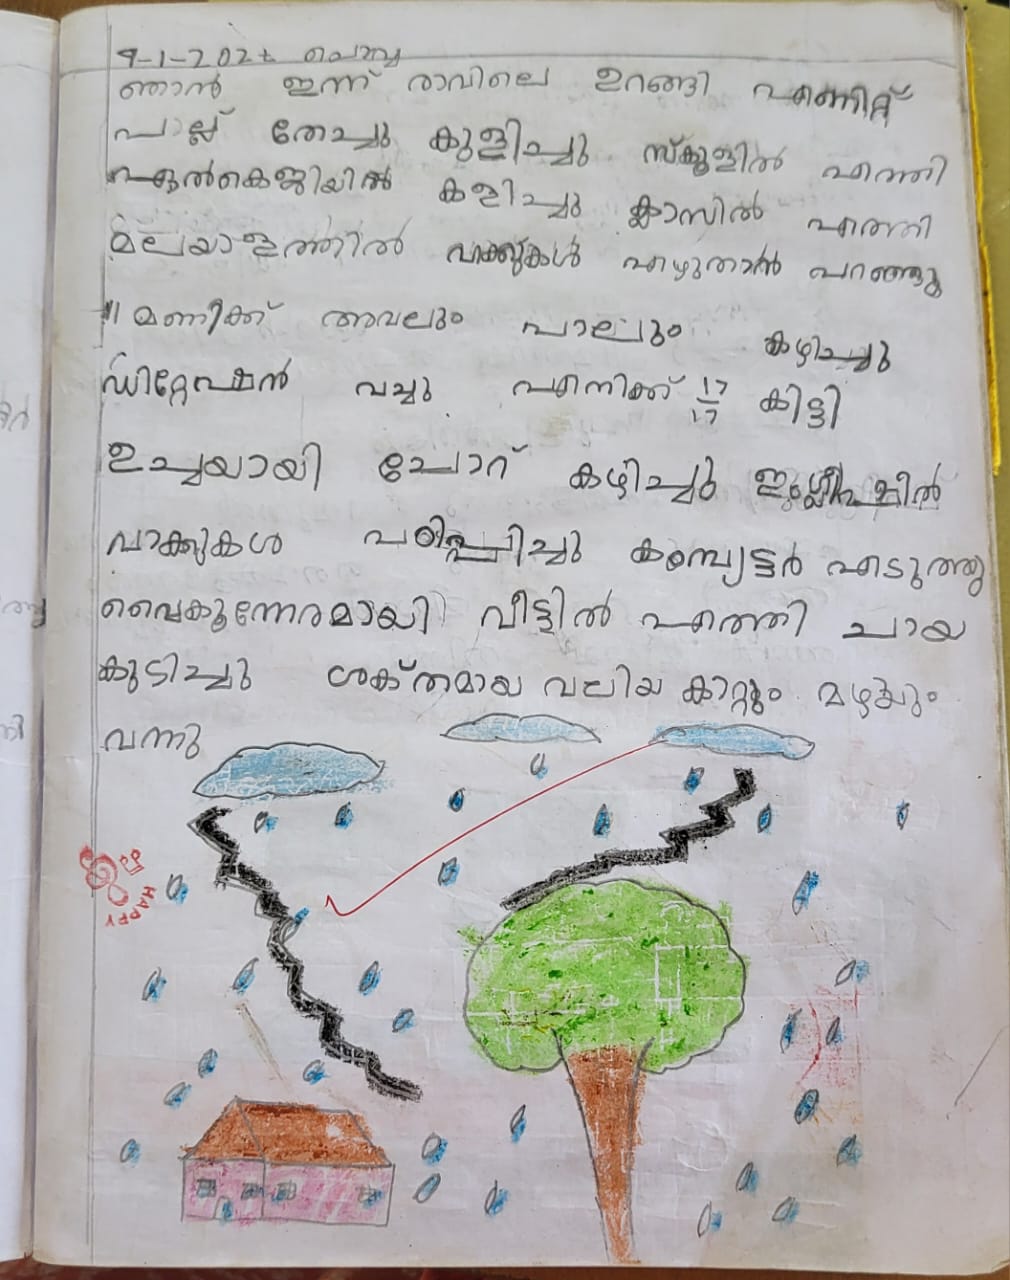 9-1-2024 ചൊവ്വ
ഞാൻ ഇന്ന് രാവിലെ ഉറങ്ങി എണീറ്റ്
പല്ല് തേച്ചു കുളിച്ചു സ്കൂളിൽ എത്തി
എൽകെജിയിൽ കളിച്ചു ക്ലാസിൽ എത്തി
മലയാളത്തിൽ വാക്കുകൾ എഴുതാൻ പറഞ്ഞു
11 മണിക്ക് അവലും പാലും കഴിച്ചു
ഡിറ്റേഷൻ വച്ചു എനിക്ക് 17/17 കിട്ടി
ഉച്ചയായി ചോറ് കഴിച്ചു ഇംഗ്ലീഷിൽ
വാക്കുകൾ പഠിപ്പിച്ചു കമ്പ്യൂട്ടർ എടുത്തു
വൈകുന്നേരമായി വീട്ടിൽ എത്തി ചായ
കുടിച്ചു ശക്തമായ വലിയ കാറ്റും മഴയും
വന്നു
HAPPY